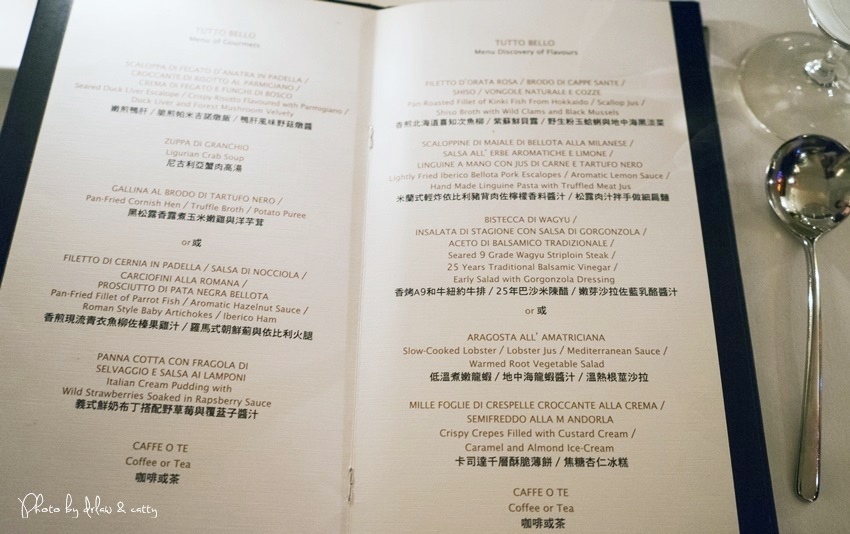 TUTTO BELLO
Menu of Gourmets
SCALOPPA DI FEGATO D'ANATRA IN PADELLA /
CROCCANTE DI RISOTTO AL PARMIGIANO /
CREMA DI FEGATO E FUNGHI DI BOSCO
Seared Duck Liver Escalope / Crispy Risotto Flavoured with Parmigiano /
Duck Liver and Forest Mushroom Velvety
嫩煎鴨肝 / 脆煎帕米吉諾燉飯 / 鴨肝風味野菇燉醬
ZUPPA DI GRANCHIO
Ligurian Crab Soup
尼古利亞蟹肉高湯
GALLINA AL BRODO DI TARTUFO NERO /
Pan-Fried Cornish Hen / Truffle Broth / Potato Puree
黑松露香露煮玉米嫩雞與洋芋茸
or 或
FILETTO DI CERNIA IN PADELLA / SALSA DI NOCCIOLA /
CARCIOFINI ALLA ROMANA /
PROSCIUTTO DI PATA NEGRA BELLOTA
Pan-Fried Fillet of Parrot Fish / Aromatic Hazelnut Sauce /
Roman Style Baby Artichokes / Iberico Ham
香煎現流青衣魚柳佐榛果雞汁 / 羅馬式朝鮮薊與依比利火腿
PANNA COTTA CON FRAGOLA DI
SELVAGGIO E SALSA AI LAMPONI
Italian Cream Pudding with
Wild Strawberries Soaked in Rapsberry Sauce
義式鮮奶布丁搭配野草莓與覆盆子醬汁
CAFFE O TE
Coffee or Tea
咖啡或茶
TUTTO BELLO
Menu Discovery of Flavours
FILETTO D'ORATA ROSA / BRODO DI CAPPE SANTE /
SHISO / VONGOLE NATURALE E COZZE
Pan-Roasted Fillet of Kinki Fish From Hokkaido / Scallop Jus /
Shiso Broth with Wild Clams and Black Mussels
香煎北海道喜知次魚柳 / 紫蘇鮮貝露 / 野生粉玉蛤蜊與地中海黑淡菜
SCALOPPINE DI MAIALE DI BELLOTA ALLA MILANESE /
SALSA ALL' ERBE AROMATICHE E LIMONE /
LINGUINE A MANO CON JUS DI CARNE E TARTUFO NERO
Lightly Fried Iberico Bellota Pork Escalopes / Aromatic Lemon Sauce /
Hand Made Linguine Pasta with Truffled Meat Jus
米蘭式輕炸依比利豬背肉佐檸檬香料醬汁 / 松露肉汁拌手做細扁麵
BISTECCA DI WAGYU /
INSALATA DI STAGIONE CON SALSA DI GORGONZOLA /
ACETO DI BALSAMICO TRADIZIONALE /
Seared 9 Grade Wagyu Striploin Steak /
25 Years Traditional Balsamic Vinegar /
Early Salad with Gorgonzola Dressing
香烤A9和牛紐約牛排 / 25年巴沙米陳醋 / 嫩芽沙拉佐藍乳酪醬汁
or 或
ARAGOSTA ALL' AMATRICIANA
Slow-Cooked Lobster / Lobster Jus / Mediterranean Sauce /
Warmed Root Vegetable Salad
低溫煮嫩龍蝦 / 地中海龍蝦醬汁 / 溫熱根莖沙拉
MILLE FOGLIE DI CRESPELLE CROCCANTE ALLA CREMA /
SEMIFREDDO ALLA M ANDORLA
Crispy Crepes Filled with Custard Cream /
Caramel and Almond Ice-Cream
卡司達千層酥脆薄餅 / 焦糖杏仁冰糕
CAFFE O TE
Coffee or Tea
咖啡或茶
Photo by drlaw & catty